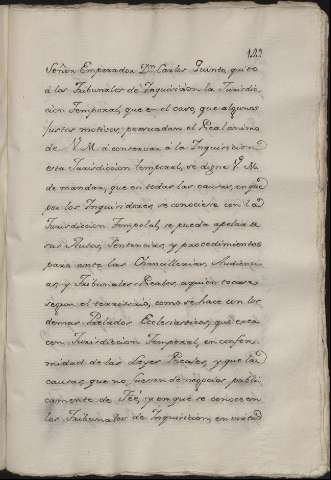 122
Señor Emperador Dn. Carlos Quinto, quito
à los Tribunales de Inquisicion la Jurisdic
cion Temporal, que en el caso, que algunos
justos motivos, persuadan el Real animo
de V. M. à conservar à la Inquisicion
esta Jurisdiccion temporal, se digne V. M.
de mandar, que en todas las causas, en que
por los Inquisidores se conociere con la
Jurisdiccion Temporal, se pueda apelar de
sus Autos, Sentencias, y procedimientos
para ante las Chancillerias, Audienci
as, y Tribunales Reales, a quien tocare
segun el territorio, como se hace con los
demas Prelados Eclesiasticos, que exer
con Jurisdiccion Temporal, en confor
midad de las Leyes Reales, y que las
causas, que no fuesen de negocios publi
camente de Feè, y en que se conoce en
los Tribunales de Inquisicion, en virtud